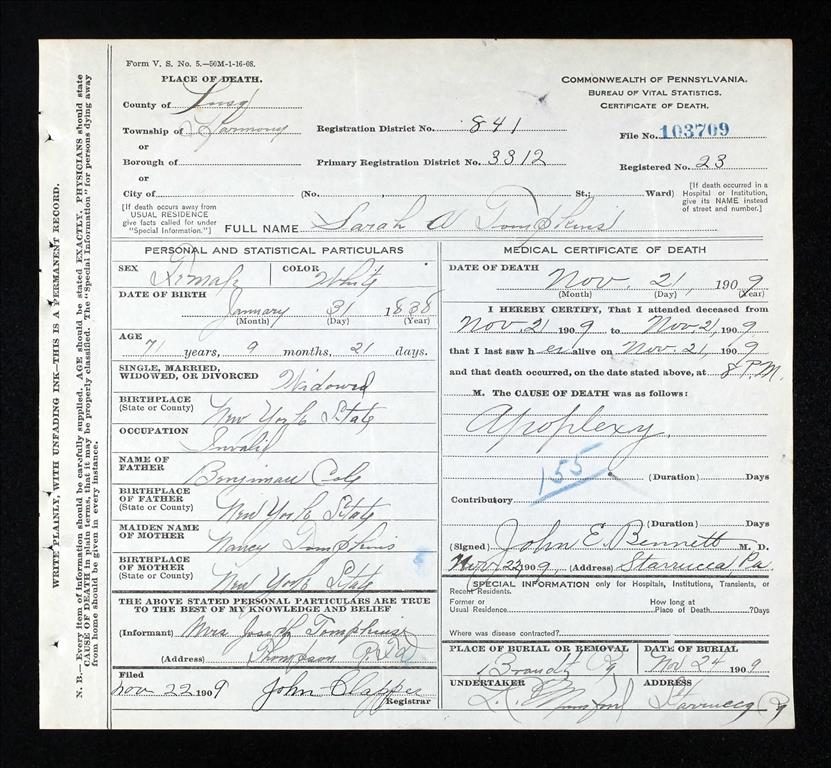 Form V. S. No. 5.—50M-1-16-08.
PLACE OF DEATH.
County of Susq
Township of Harmony
or
Borough of
or
City of
COMMONWEALTH OF PENNSYLVANIA.
BUREAU OF VITAL STATISTICS.
CERTIFICATE OF DEATH.
Registration District No. 841
File No. 103709
Primary Registration District No. 3312
Registered No. 23
(No. , St.; Ward)
[If death occurred in a Hospital or Institution, give its NAME instead of street and number.]
[If death occurs away from USUAL RESIDENCE give facts called for under "Special Information."]
FULL NAME Sarah A Tompkins
PERSONAL AND STATISTICAL PARTICULARS
SEX Female COLOR White
DATE OF BIRTH January 31 1838
(Month) (Day) (Year)
AGE 71 years, 9 months, 21 days.
SINGLE, MARRIED, WIDOWED, OR DIVORCED Widowed
BIRTHPLACE (State or County) New York State
OCCUPATION Invalid
NAME OF FATHER Benjiman Cole
BIRTHPLACE OF FATHER (State or County) New York State
MAIDEN NAME OF MOTHER Nancy Tompkins
BIRTHPLACE OF MOTHER (State or County) New York State
THE ABOVE STATED PERSONAL PARTICULARS ARE TRUE TO THE BEST OF MY KNOWLEDGE AND BELIEF
(Informant) Mrs Joseph Tompkins
(Address) Thompson
Filed Nov 22 1909 John Clapper
Registrar
MEDICAL CERTIFICATE OF DEATH
DATE OF DEATH Nov. 21, 1909
(Month) (Day) (Year)
I HEREBY CERTIFY, That I attended deceased from
Nov. 21 1909 to Nov. 21, 1909
that I last saw her alive on Nov. 21, 1909
and that death occurred, on the date stated above, at 8 P.M.
M. The CAUSE OF DEATH was as follows:
Apoplexy.
155
(Duration) Days
Contributory
(Duration) Days
(Signed) John E. Bennett M. D.
Nov. 22 1909, (Address) Starrucca Pa.
SPECIAL INFORMATION only for Hospitals, Institutions, Transients, or Recent Residents.
Former or Usual Residence
How long at Place of Death ? Days
Where was disease contracted?
PLACE OF BURIAL OR REMOVAL Brandt Pa
DATE OF BURIAL Nov 24 1909
UNDERTAKER
ADDRESS Starrucca Pa
WRITE PLAINLY, WITH UNFADING INK—THIS IS A PERMANENT RECORD.
N. B.—Every item of information should be carefully supplied. AGE should be stated EXACTLY. PHYSICIANS should state
CAUSE OF DEATH in plain terms, that it may be properly classified. The "Special Information" for persons dying away
from home should be given in every instance.